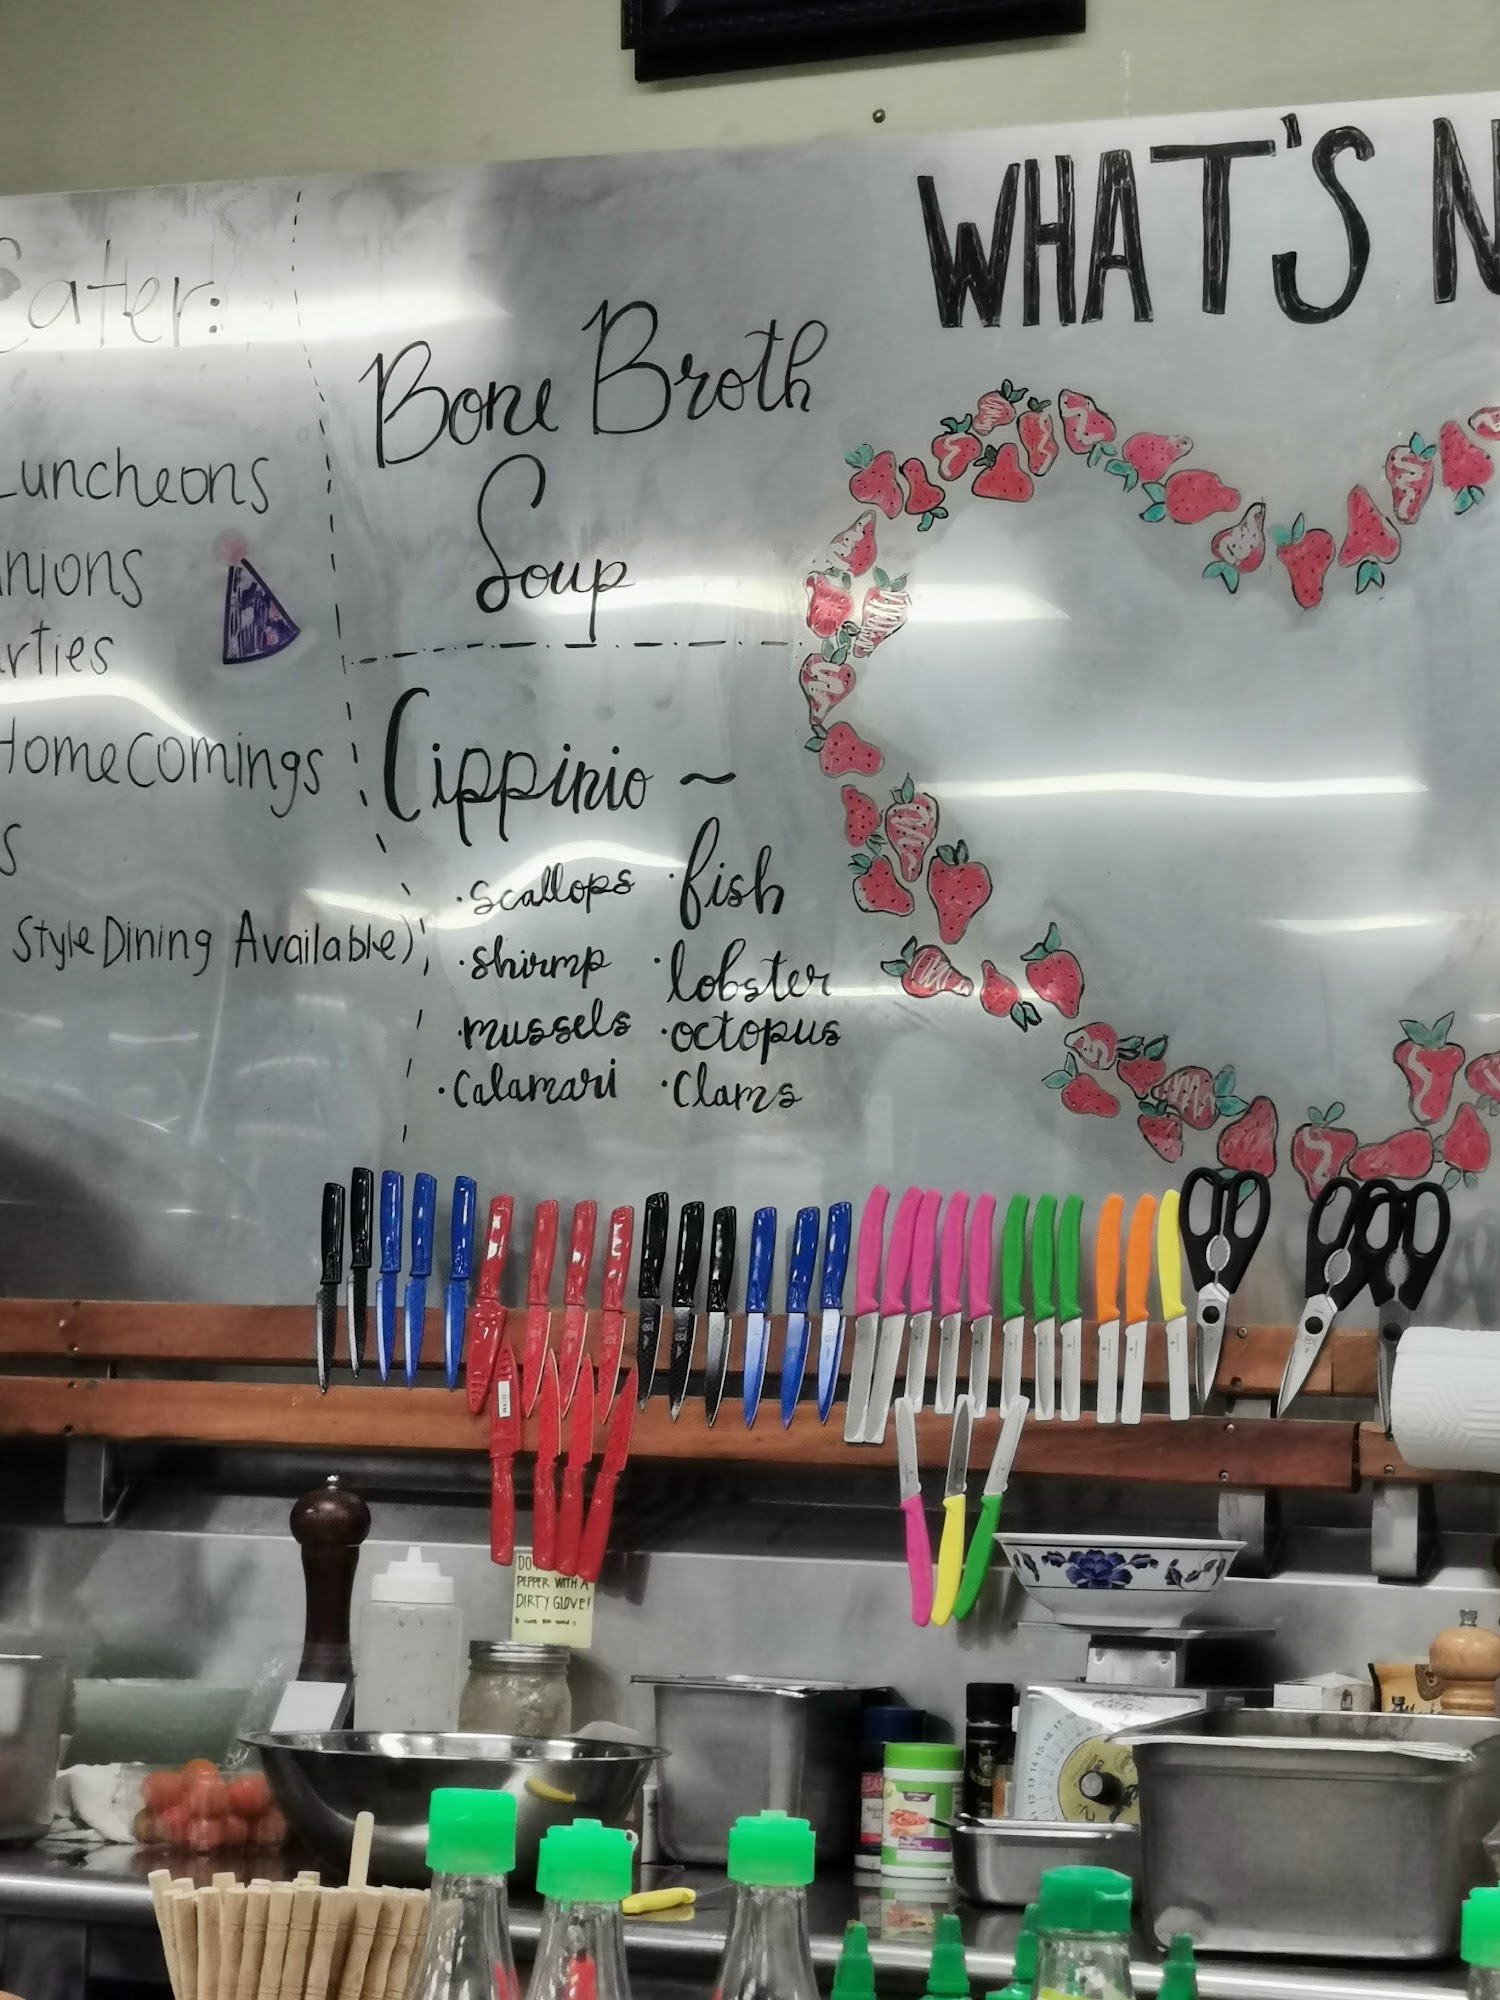 Eater:
Luncheons
nions
rties
HomeComings
s
Style Dining Available)
Bone Broth
Soup
Cippinio ~
· scallops · fish
· shirmp · lobster
· mussels · octopus
· Calamari · Clams
WHAT'S N
DO
PEPPER WITH A
DIRTY GLOVE!